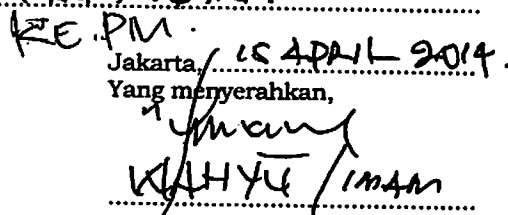 KE.PM.
Jakarta, 15 APRIL 2014.
Yang menyerahkan,
WAHYU / IMAM